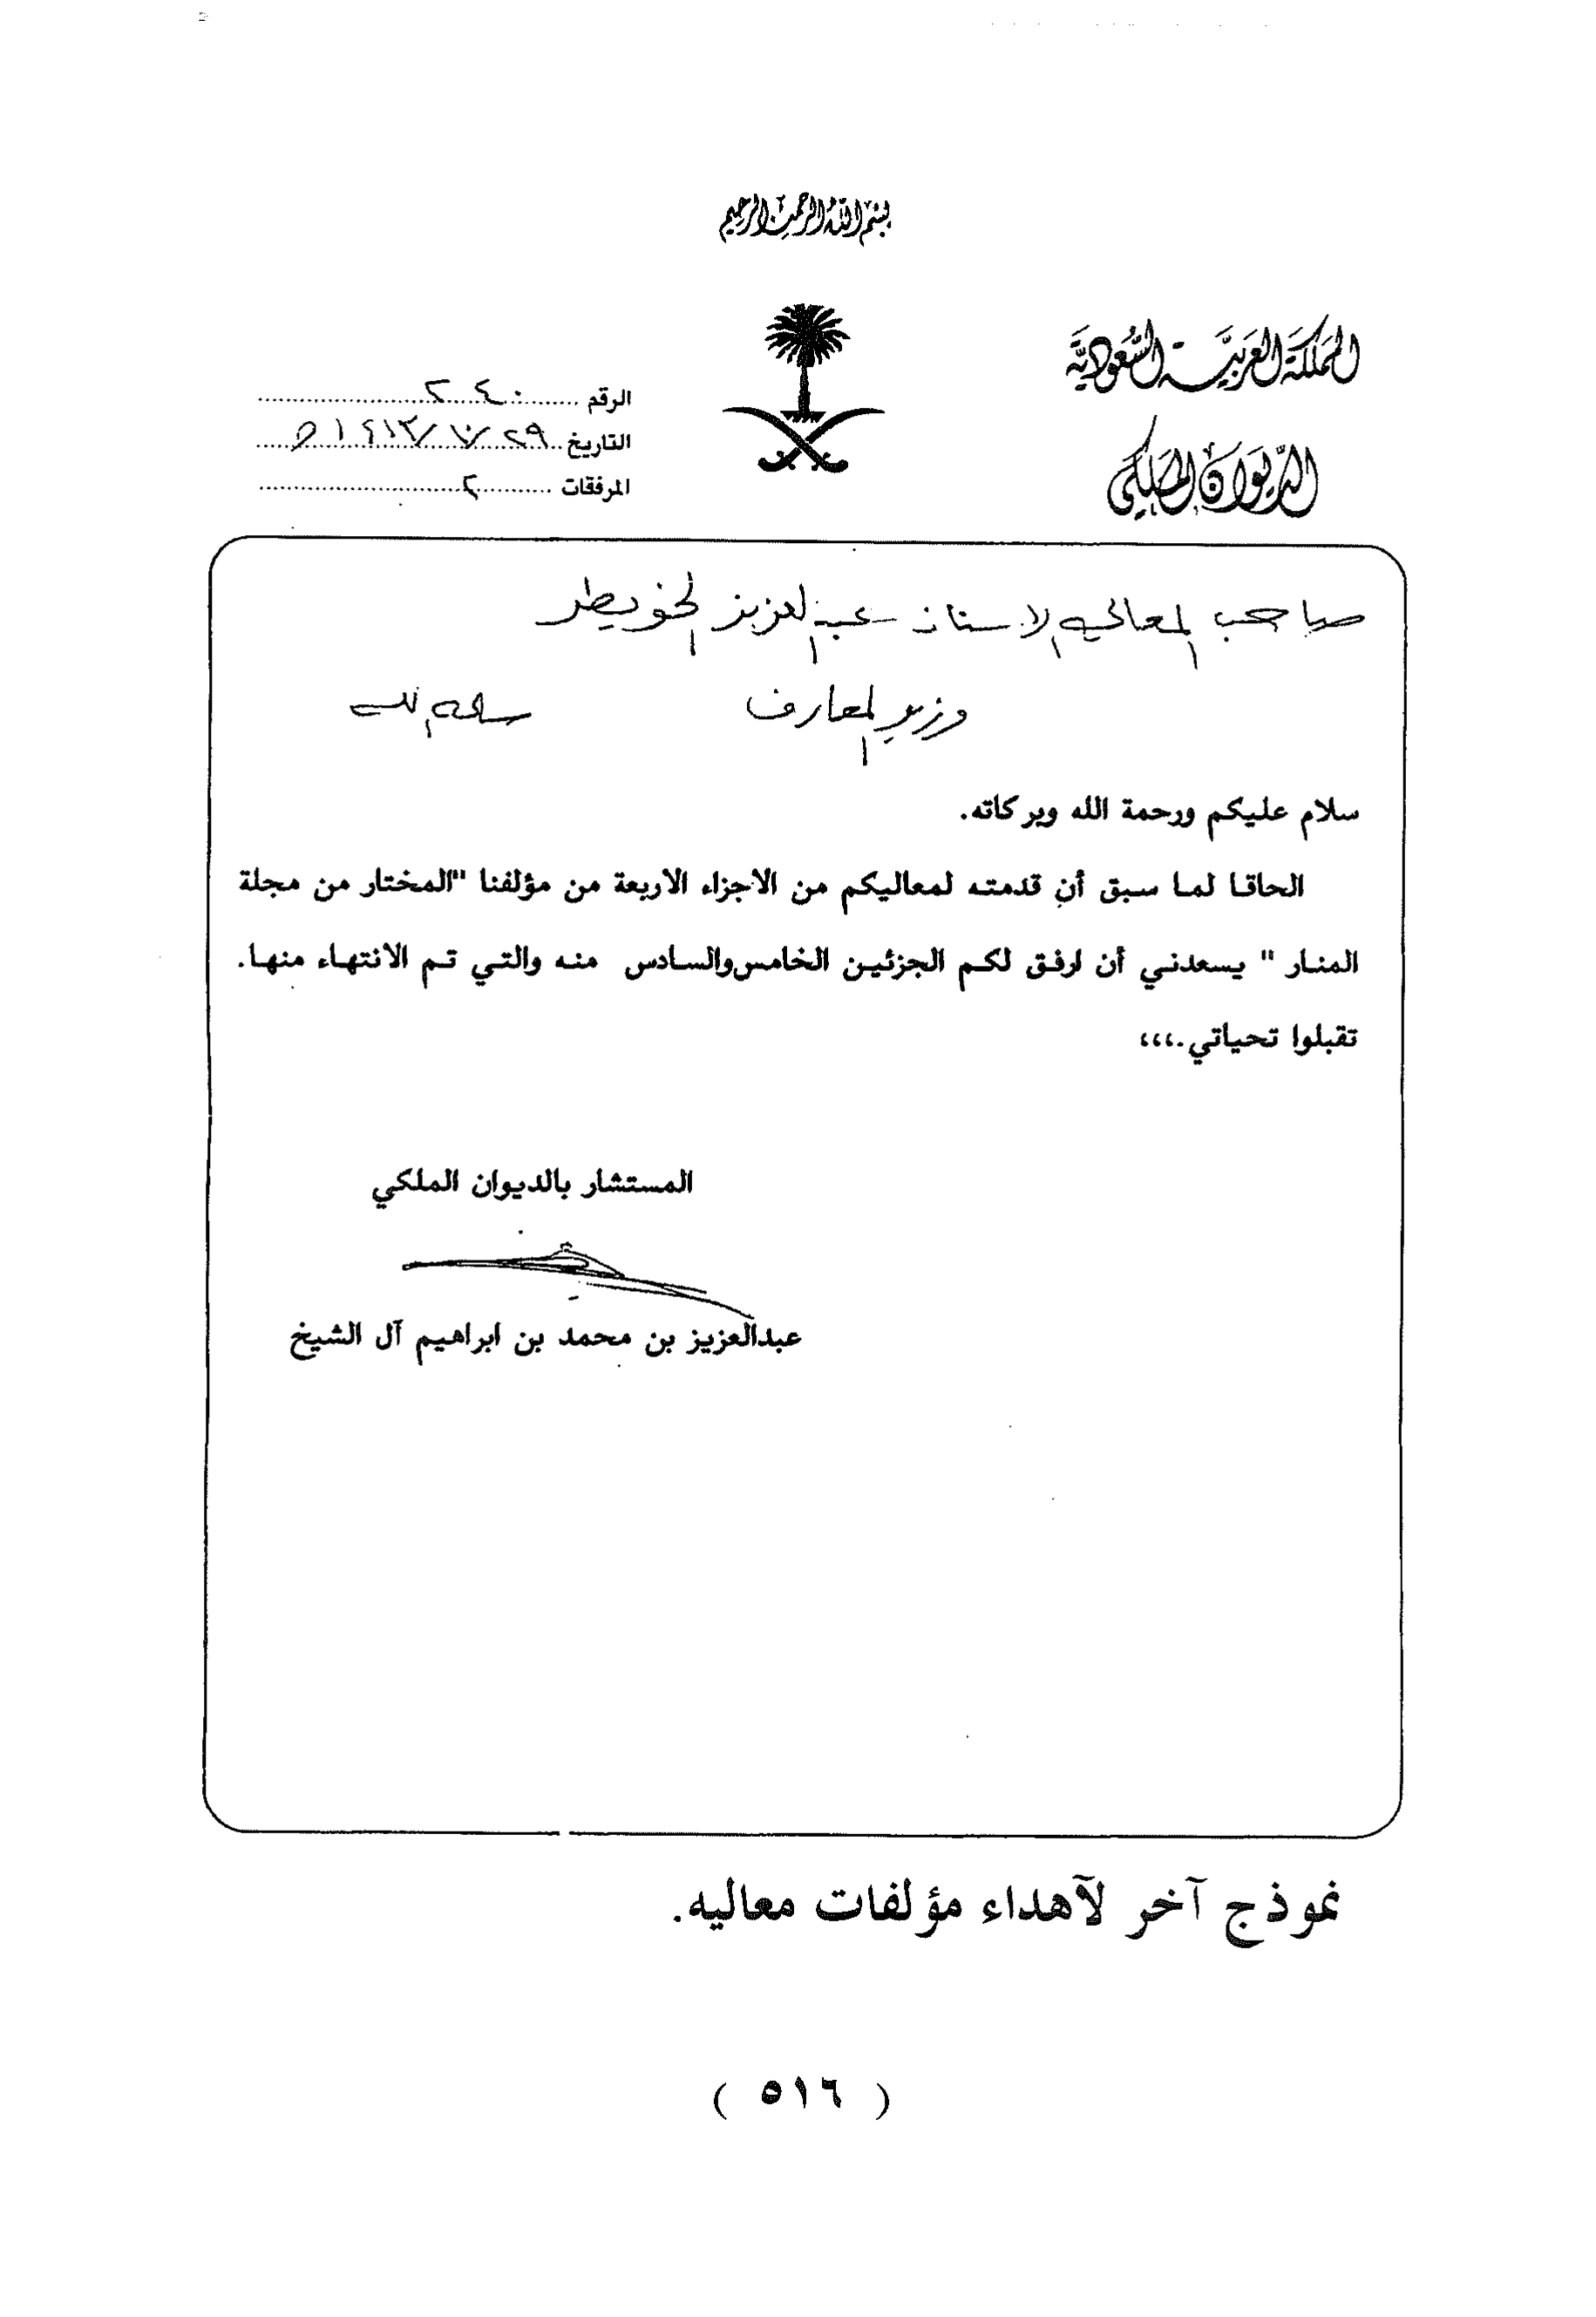 بسم الله الرحمن الرحيم
المملكة العربية السعودية
الديوان الملكي
الرقم
التاريخ ٢٩/٧/١٤١٣هـ
المرفقات ٢
صاحب المعالي الاستاذ عبدالعزيز الخويطر
وزير المعارف سلمه الله
سلام عليكم ورحمة الله وبركاته.
الحاقا لما سبق أن قدمته لمعاليكم من الاجزاء الاربعة من مؤلفنا "المختار من مجلة
المنار " يسعدني أن ارفق لكم الجزئين الخامس والسادس منه والتي تم الانتهاء منها.
تقبلوا تحياتي.،،،
المستشار بالديوان الملكي
عبدالعزيز بن محمد بن ابراهيم آل الشيخ
نموذج آخر لآهداء مؤلفات معاليه.
( ٥١٦ )